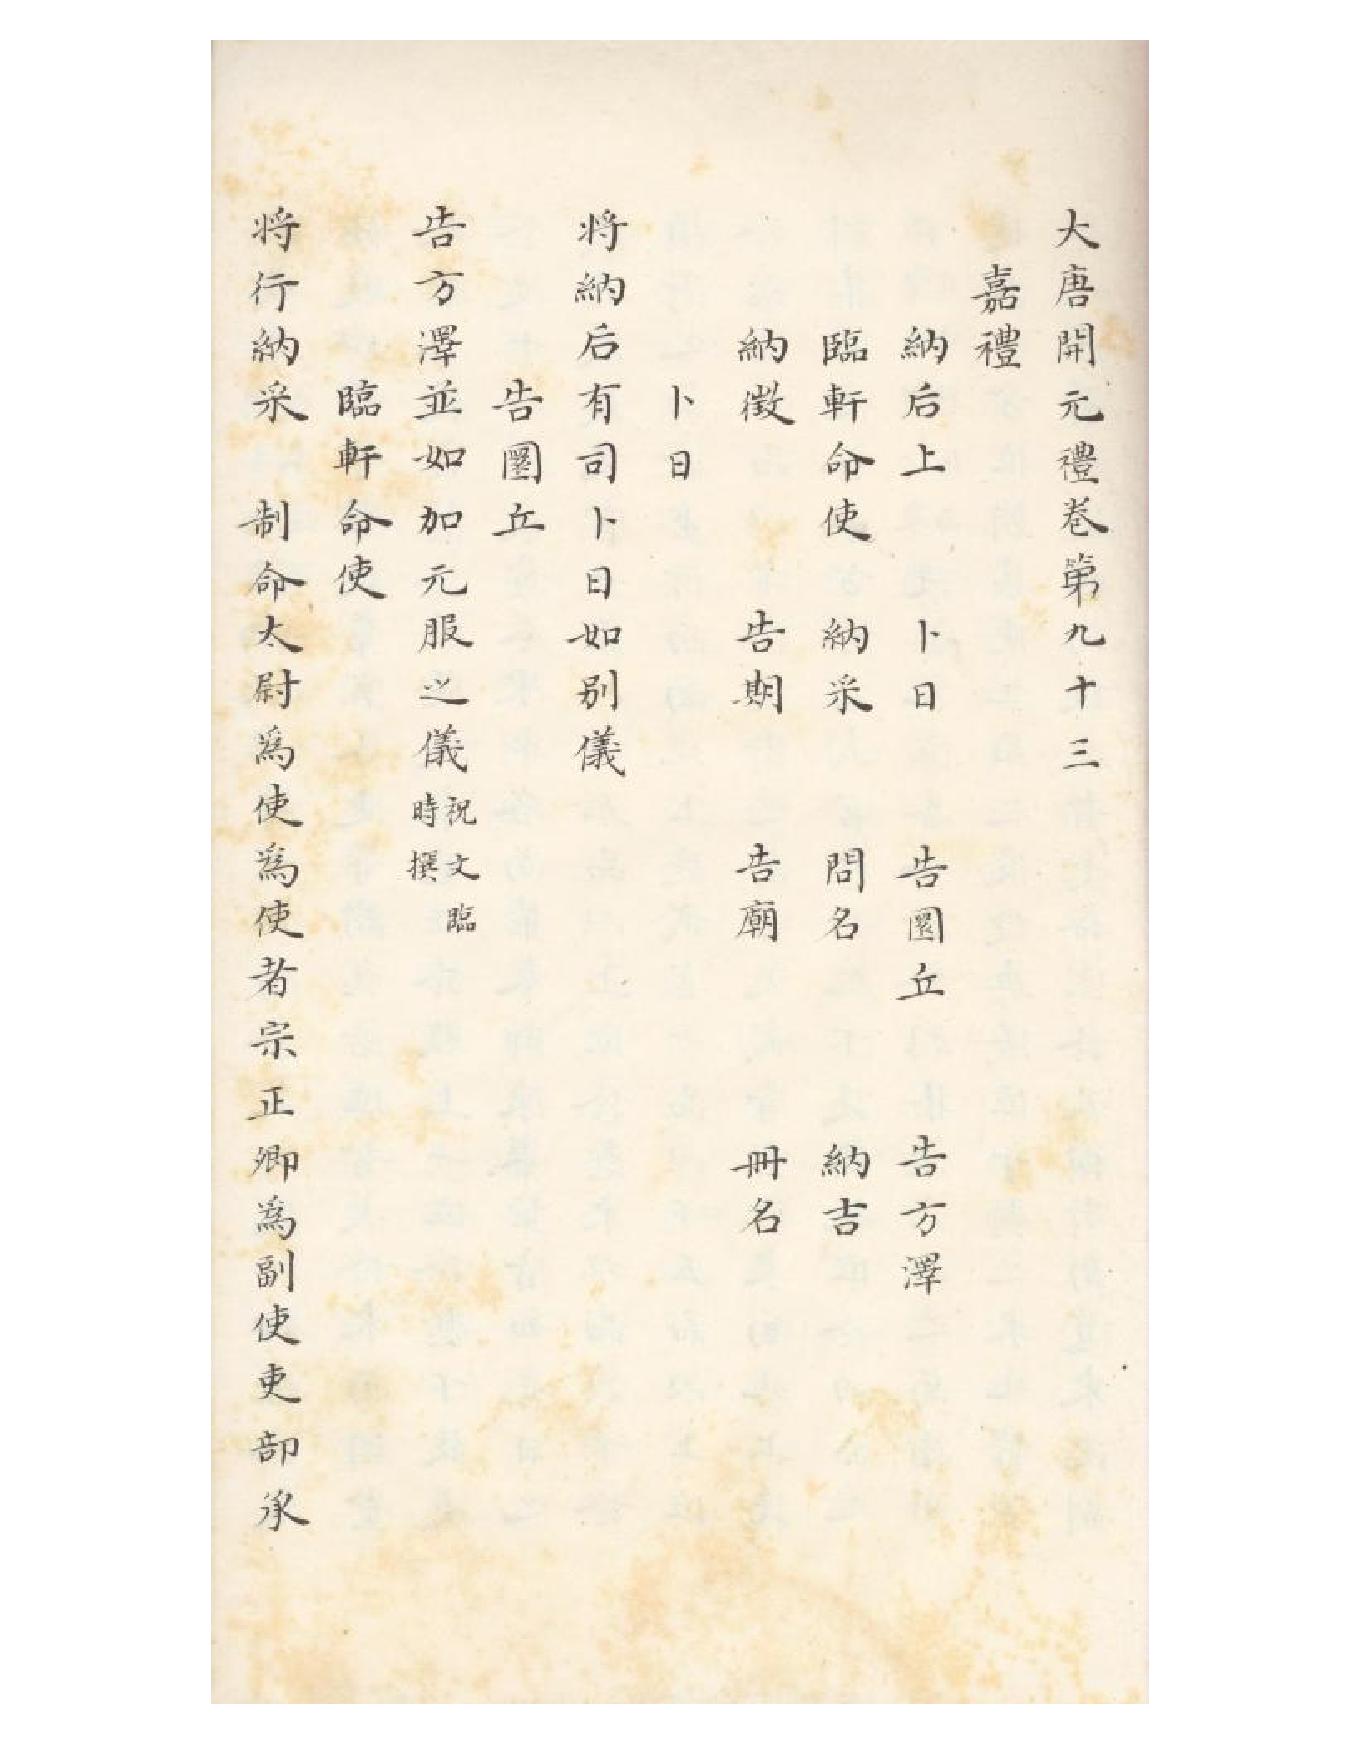 大唐開元禮卷第九十三
嘉禮
納后上　卜日　告圜丘　告方澤
臨軒命使　納采　問名　納吉
納徵　告期　告廟　冊名
卜日
將納后有司卜日如別儀
告圜丘
告方澤並如加元服之儀祝文臨時撰
臨軒命使
將行納采　制命太尉為使為使者宗正卿為副使吏部承